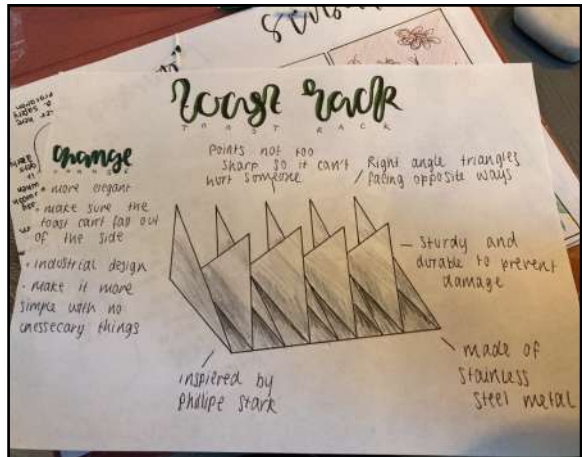 toast rack
TOAST RACK
change
CHANGE
• more elegant
• make sure the
toast can't fall out
of the side
• industrial design
• make it more
simple with no
unessecary things
Points not too
sharp so it can't
hurt someone
Right angle triangles
facing opposite ways
sturdy and
durable to prevent
damage
made of
stainless
steel metal
inspiered by
phillipe stark